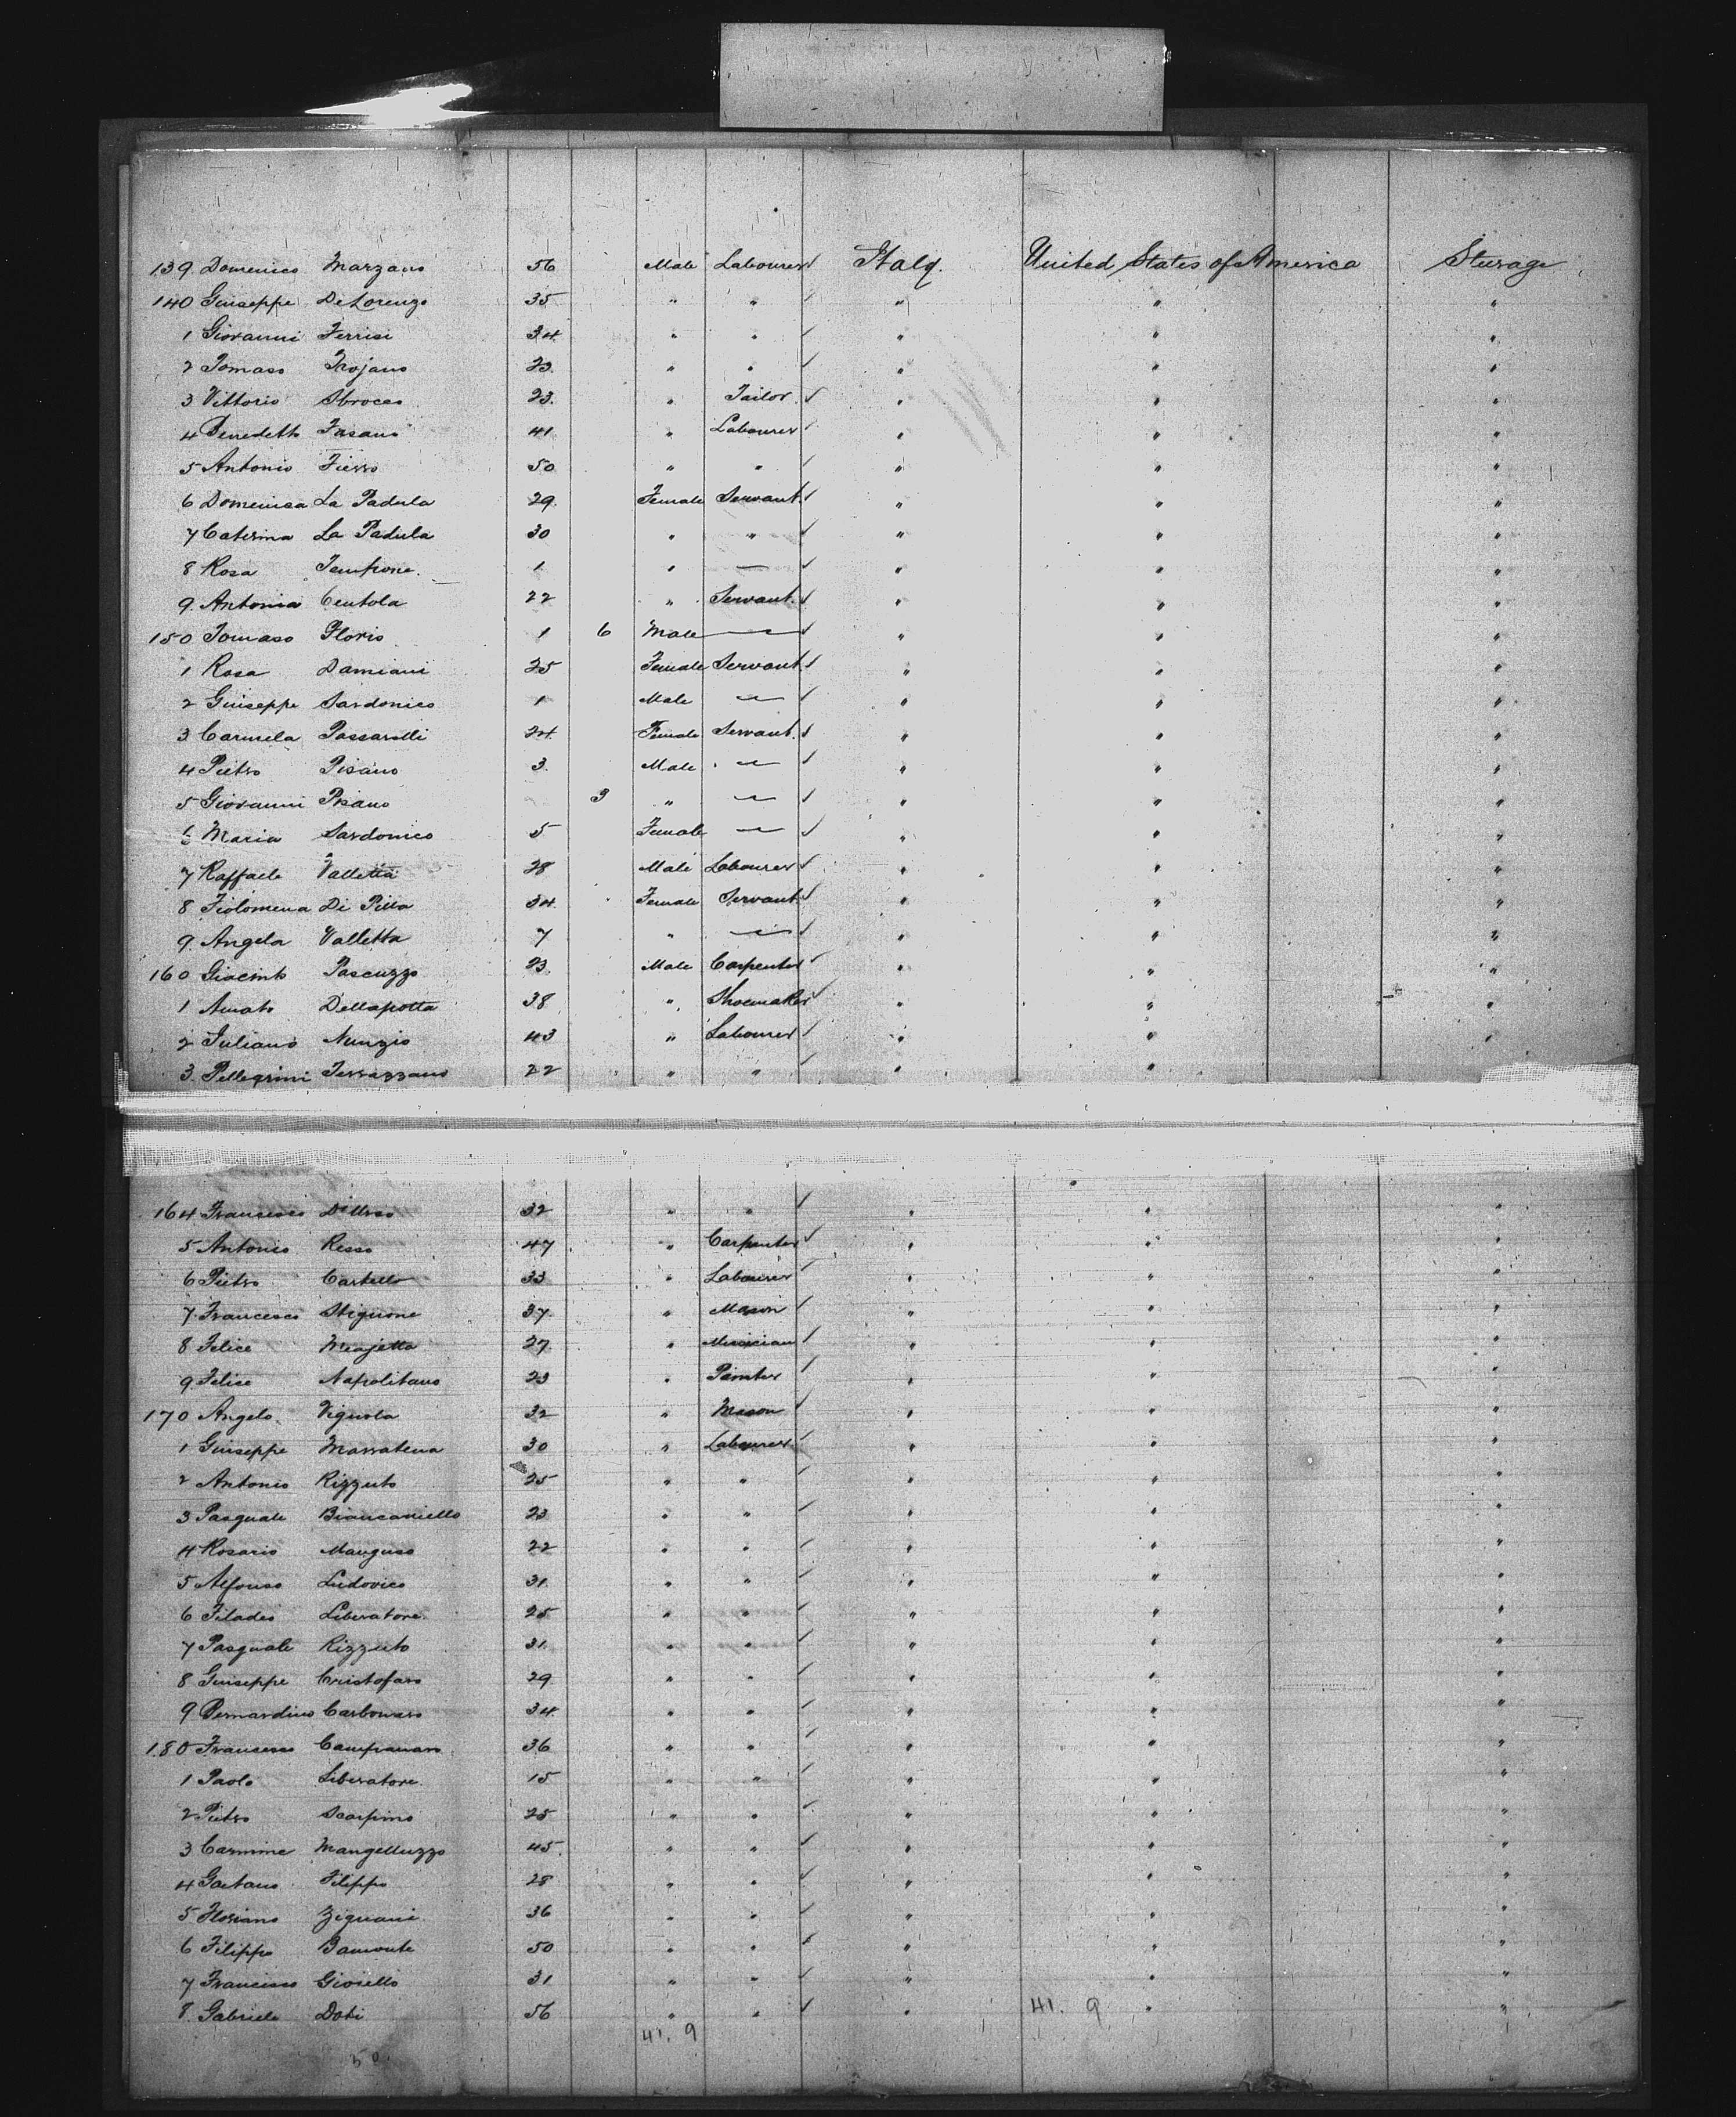 139 Domenico Marzano 56 Male Labourer Italy. United States of America Steerage
140 Giuseppe DeLorenzo 35 " " " " "
1 Giovanni Ferrisi 34 " " " " "
2 Tomaso Trojano 23 " " " " "
3 Vittorio Sbrocco 23 " Tailor " " "
4 Benedetto Fasano 41 " Labourer " " "
5 Antonio Fierro 50 " " " " "
6 Domenica La Padula 29 Female Servant " " "
7 Caterina La Padula 30 " " " " "
8 Rosa Tempone 1 " — " " "
9 Antonia Centola 22 " Servant " " "
150 Tomaso Florio 1 6 Male — " " "
1 Rosa Damiani 25 Female Servant " " "
2 Giuseppe Sardonico 1 Male — " " "
3 Carmela Passarelli 24 Female Servant " " "
4 Pietro Pisano 3 Male — " " "
5 Giovanni Pisano 3 " — " " "
6 Maria Sardonico 5 Female — " " "
7 Raffaele Valletta 28 Male Labourer " " "
8 Fiolomena Di Pilla 34 Female Servant " " "
9 Angela Valletta 7 " — " " "
160 Giacinto Pascuzzo 23 Male Carpenter " " "
1 Amato Dellapotta 38 " Shoemaker " " "
2 Juliano Nunzio 43 " Labourer " " "
3 Pellegrini Terrazzano 22 " " " " "
164 Francesco D'Urso 32 " " " " "
5 Antonio Risso 47 " Carpenter " " "
6 Pietro Cartello 33 " Labourer " " "
7 Francesco Stiglione 37 " Mason " " "
8 Felice Majetta 27 " Musician " " "
9 Felice Napolitano 23 " Painter " " "
170 Angelo Vignola 32 " Mason " " "
1 Giuseppe Massatena 30 " Labourer " " "
2 Antonio Rizzuto 25 " " " " "
3 Pasquale Biancaniello 23 " " " " "
4 Rosario Manguso 22 " " " " "
5 Alfonso Ludovico 31 " " " " "
6 Filadeo Liberatore 25 " " " " "
7 Pasquale Rizzuto 31 " " " " "
8 Giuseppe Cristofaro 29 " " " " "
9 Bernardino Carbonaro 34 " " " " "
180 Francesco Campanaro 36 " " " " "
1 Paolo Liberatore 15 " " " " "
2 Pietro Scarpino 25 " " " " "
3 Carmine Mangelluzzo 45 " " " " "
4 Gaetano Filippo 28 " " " " "
5 Floriano Zignani 36 " " " " "
6 Filippo Bamonte 50 " " " " "
7 Francisco Gioiello 31 " " " " "
8 Gabriele Doti 56 " " " 41. 9 " "
41. 9
50